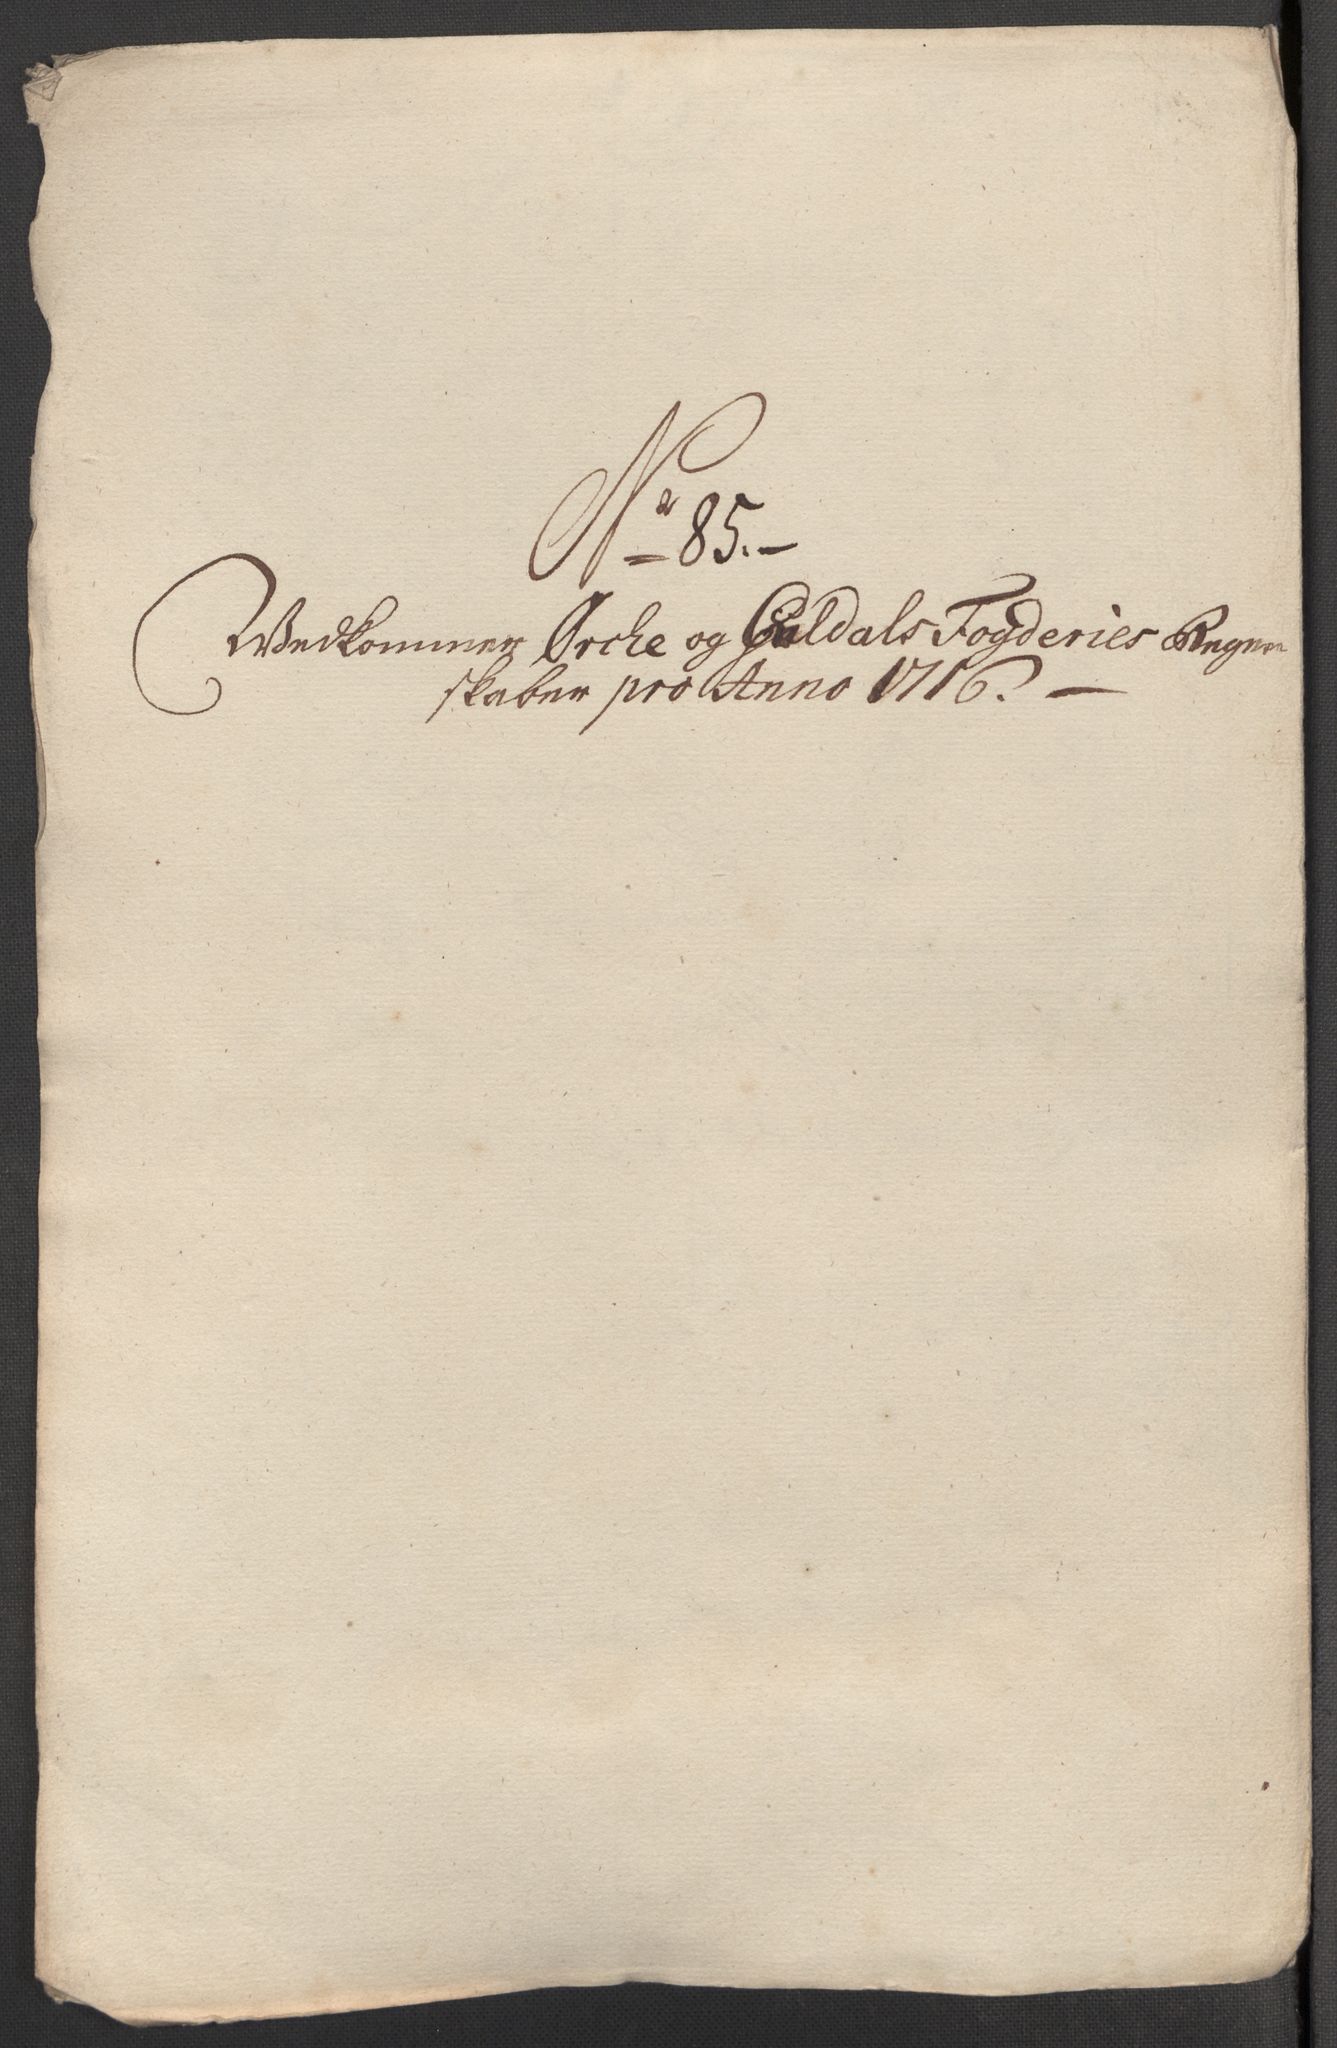 No 85.-
Wedkommer Örche og Guldals Fogderies Regne
skaber pro Anno 1716. -